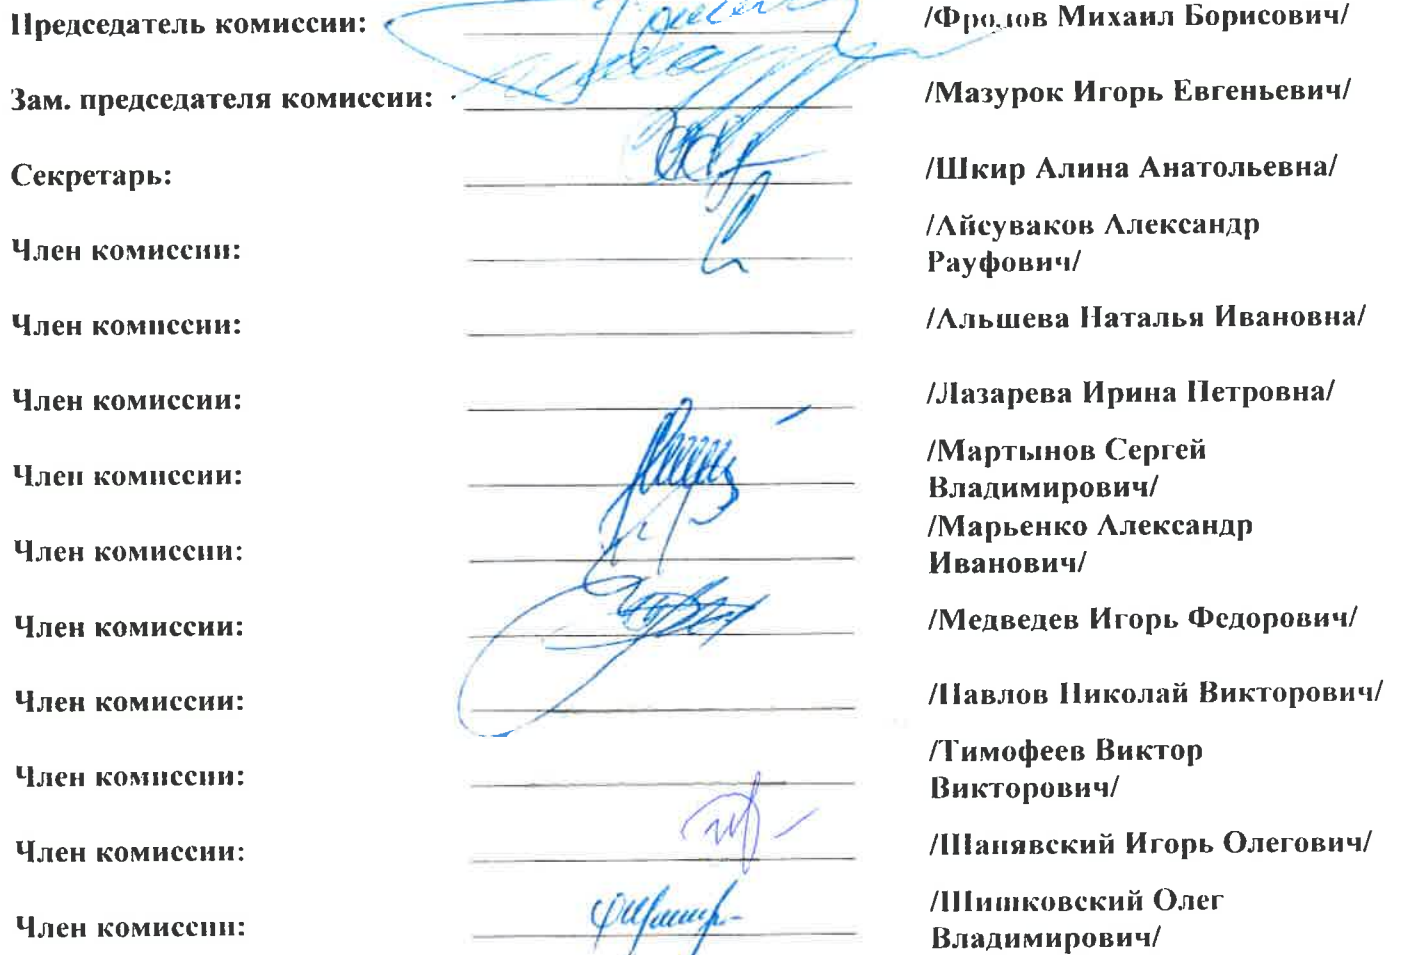 Председатель комиссии: /Фролов Михаил Борисович/
Зам. председателя комиссии: /Мазурок Игорь Евгеньевич/
Секретарь: /Шкир Алина Анатольевна/
Член комиссии: /Айсуваков Александр
Рауфович/
Член комиссии: /Альшева Наталья Ивановна/
Член комиссии: /Лазарева Ирина Петровна/
Член комиссии: /Мартынов Сергей
Владимирович/
Член комиссии: /Марьенко Александр
Иванович/
Член комиссии: /Медведев Игорь Федорович/
Член комиссии: /Павлов Николай Викторович/
Член комиссии: /Тимофеев Виктор
Викторович/
Член комиссии: /Шанявский Игорь Олегович/
Член комиссии: /Шишковский Олег
Владимирович/